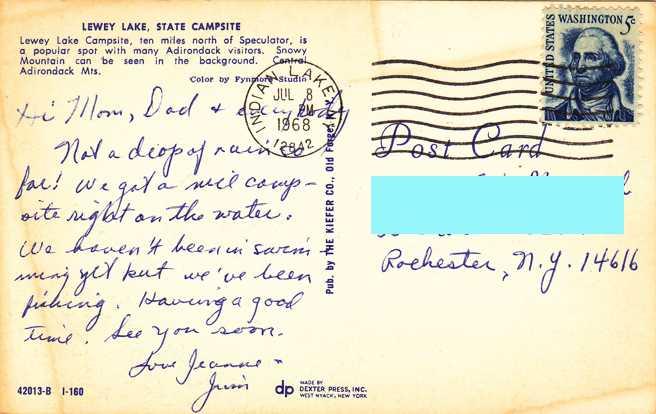 LEWEY LAKE, STATE CAMPSITE
Lewey Lake Campsite, ten miles north of Speculator, is
a popular spot with many Adirondack visitors. Snowy
Mountain can be seen in the background. Central
Adirondack Mts.
Color by Fynmore Studio
Hi Mom, Dad & everybody
Not a drop of rain so
far! We got a nice camp-
site right on the water.
We haven't been in swim-
ming yet but we've been
fishing. Having a good
time. See you soon.
Love Jeanne &
Jim
42013-B I-160
Pub. by THE KIEFER CO., Old Forge, N. Y.
INDIAN LAKE
JUL 8
PM
1968
12842
UNITED STATES
WASHINGTON 5c
Post Card
Rochester, N.Y. 14616
dp
MADE BY
DEXTER PRESS, INC.
WEST NYACK, NEW YORK